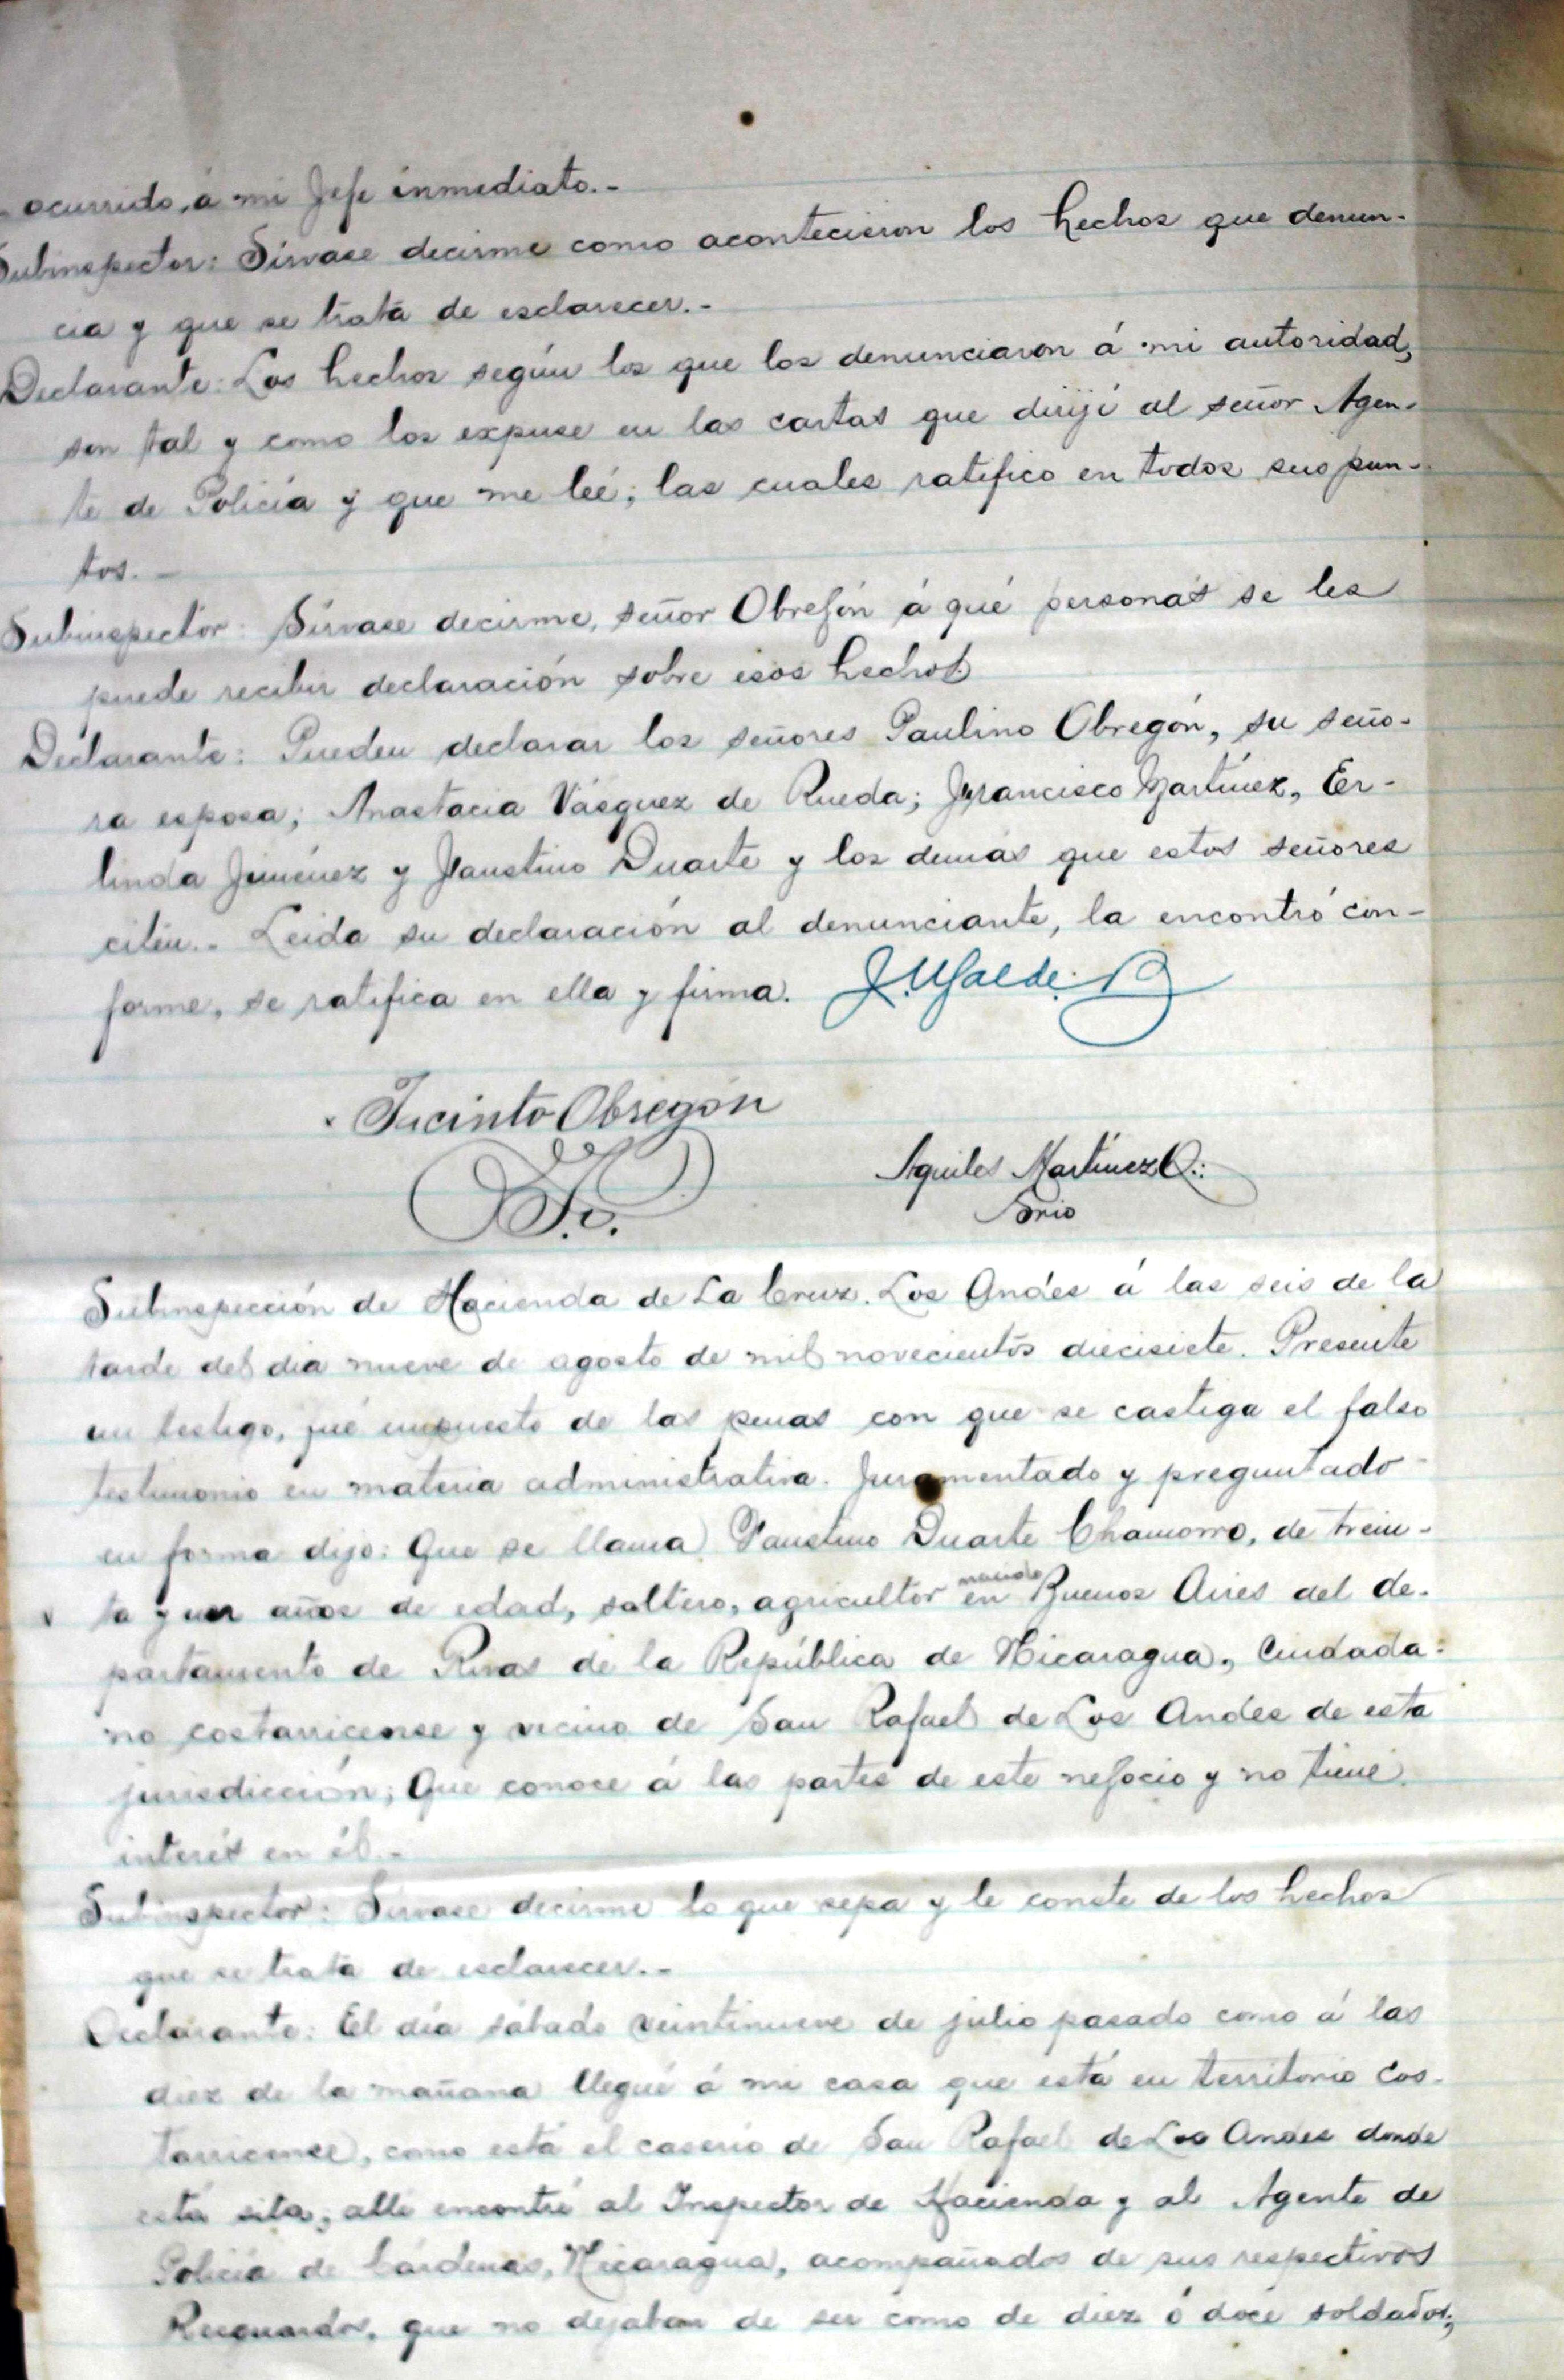 ocurrido, á mi Jefe inmediato.-
Subinspector: Sírvase decirme como acontecieron los hechos que denun-
cia y que se trata de esclarecer.-
Declarante: Los hechos según los que los denunciaron á mi autoridad,
son tal y como los expuse en las cartas que dirijí al señor Agen-
te de Policía y que me leé; las cuales ratifico en todos sus pun-
tos.-
Subinspector: Sírvase decirme, señor Obregón á qué personas se les
puede recibir declaración sobre esos hechos.
Declarante: Pueden declarar los señores Paulino Obregón, su seño-
ra esposa; Anastacia Vásquez de Rueda; Francisco Martínez, Er-
linda Jiménez y Faustino Duarte y los demás que estos señores
citen.- Leida su declaración al denunciante, la encontró con-
forme, se ratifica en ella y firma. J. Ugalde. B
Jacinto Obregón
J. O.
Aquiles Martínez O.:
Srio
Subinspección de Hacienda de La Cruz. Los Andes á las seis de la
tarde del dia nueve de agosto de mil novecientos diecisiete. Presente
un testigo, fué impuesto de las penas con que se castiga el falso
testimonio en materia administrativa. Juramentado y preguntado
en forma dijo: Que se llama Faustino Duarte Chamorro, de trein-
ta y un años de edad, soltero, agricultor nacido en Buenos Aires del de-
partamento de Rivas de la República de Nicaragua, Ciudada-
no costarricense y vecino de San Rafael de Los Andes de esta
jurisdicción; Que conoce á las partes de este negocio y no tiene
interés en él.-
Subinspector: Sírvase decirme lo que sepa y le conste de los hechos
que se trata de esclarecer.-
Declarante: El día sábado veintinueve de julio pasado como á las
diez de la mañana llegué á mi casa que está en territorio Cos-
tarricense, como está el caserio de San Rafael de Los Andes donde
está sita; allí encontré al Inspector de Hacienda y al Agente de
Policía de Cárdenas, Nicaragua, acompañados de sus respectivos
Resguardos, que no dejaban de ser como de diez ó doce soldados;